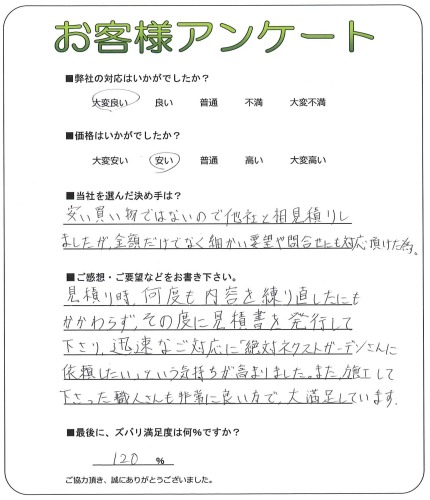 お客様アンケート
■弊社の対応はいかがでしたか？
大変良い 良い 普通 不満 大変不満
■価格はいかがでしたか？
大変安い 安い 普通 高い 大変高い
■当社を選んだ決め手は？
安い買い物ではないので他社と相見積りし
ましたが、金額だけでなく細かい要望や問合せにも対応頂けた為。
■ご感想・ご要望などをお書き下さい。
見積り時、何度も内容を練り直したにも
かかわらず、その度に見積書を発行して
下さり、迅速なご対応に「絶対ネクストガーデンさんに
依頼したい」という気持ちが高まりました。また、施工して
下さった職人さんも非常に良い方で、大満足しています。
■最後に、ズバリ満足度は何％ですか？
120 ％
ご協力頂き、誠にありがとうございました。